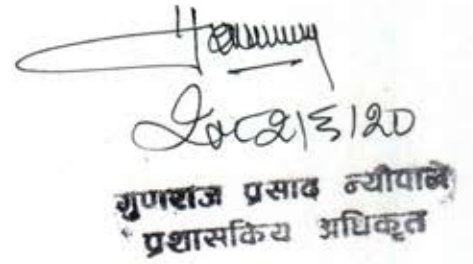 २०८२।६।२०
गुणराज प्रसाद न्यौपाने
प्रशासकिय अधिकृत